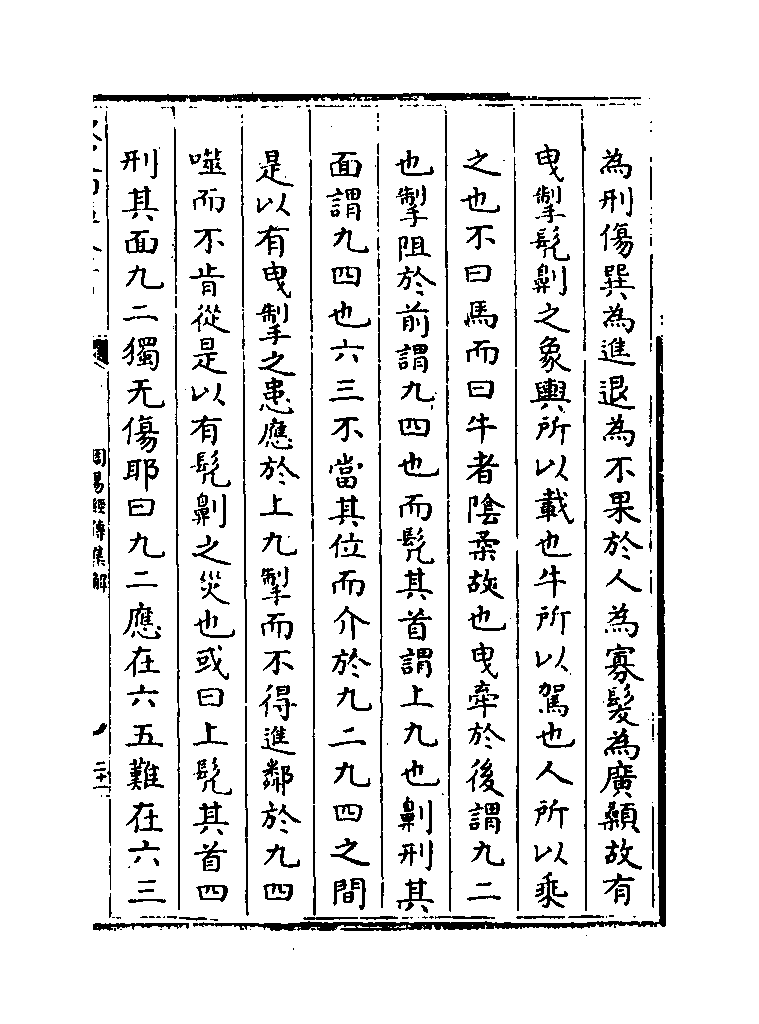 為刑傷巽為進退為不果於人為寡髮為廣顙故有
曳掣髡劓之象輿所以載也牛所以駕也人所以乘
之也不曰馬而曰牛者陰柔故也曳牽於後謂九二
也掣阻於前謂九四也而髡其首謂上九也劓刑其
面謂九四也六三不當其位而介於九二九四之間
是以有曳掣之患應於上九掣而不得進鄰於九四
噬而不肯從是以有髡劓之災也或曰上髡其首四
刑其面九二獨无傷耶曰九二應在六五難在六三
周易經傳集解
二十一